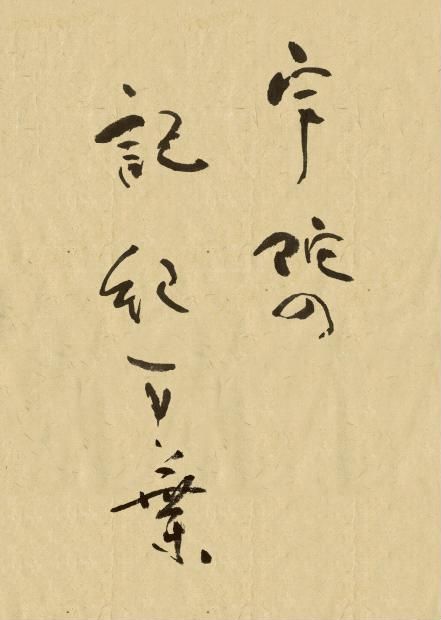 宇陀の
記紀万葉